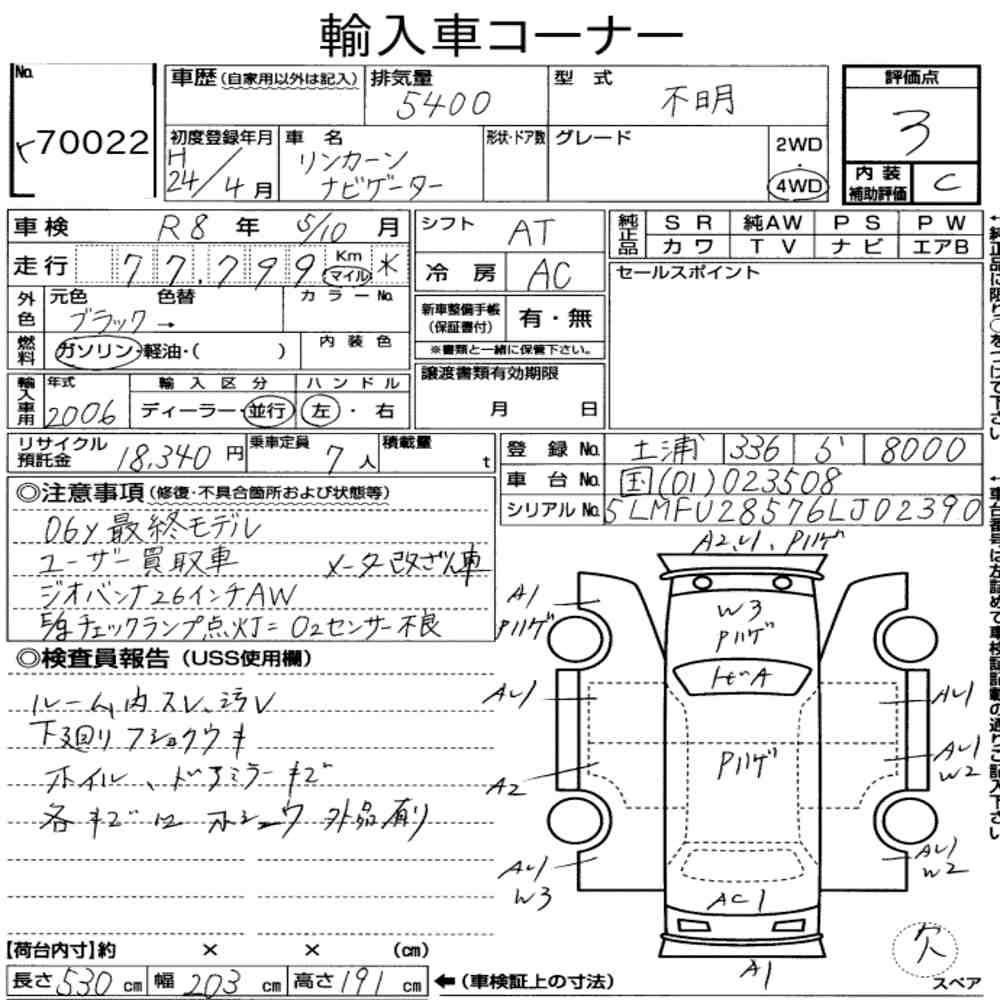 輸入車コーナー
No.
70022
車歴 (自家用以外は記入)
排気量
5400
型式
不明
評価点
3
初度登録年月
H
24/4月
車名
リンカーン
ナビゲーター
形状・ドア数
グレード
2WD
・
4WD
内装
補助評価
C
車検 R8年 5/10月
走行 77,799 Km マイル ※
外色 元色 色替 カラーNo.
ブラック →
燃料 ガソリン・軽油・( )
内装色
シフト AT
冷房 AC
新車整備手帳
(保証書付)
有・無
※書類と一緒に保管下さい。
純正品 SR 純AW PS PW
カワ TV ナビ エアB
セールスポイント
←純正品に限り○をつけて下さい
輸入車用 年式 輸入区分 ハンドル
2006 ディーラー・並行 左・右
譲渡書類有効期限
月 日
リサイクル
預託金 18,340円
乗車定員 7人
積載量 t
登録No. 土浦 336 ら 8000
車台No. 国(01)023508
シリアルNo. 5LMFU28576LJ02390
←車台番号は左詰めで車検証記載の通りご記入下さい
◎注意事項 (修復・不具合箇所および状態等)
06y最終モデル
ユーザー買取車 メータ改ざん車
ジオバンナ26インチAW
チェックランプ点灯=O2センサー不良
◎検査員報告 (USS使用欄)
ルーム内スレ、汚レ
下廻りフショクウキ
ホイル、ドアミラーキズ
各キズ ホシュウ 外品有り
A2, U1, P11ゲ
A1
P11ゲ
W3
P11ゲ
トビA
AU1
AU1
P11ゲ
A2
AU1
W2
AU1
W3
AU1
W2
AC1
A1
欠
スペア
【荷台内寸】約 × × (cm)
長さ530cm 幅203cm 高さ191cm ←(車検証上の寸法)